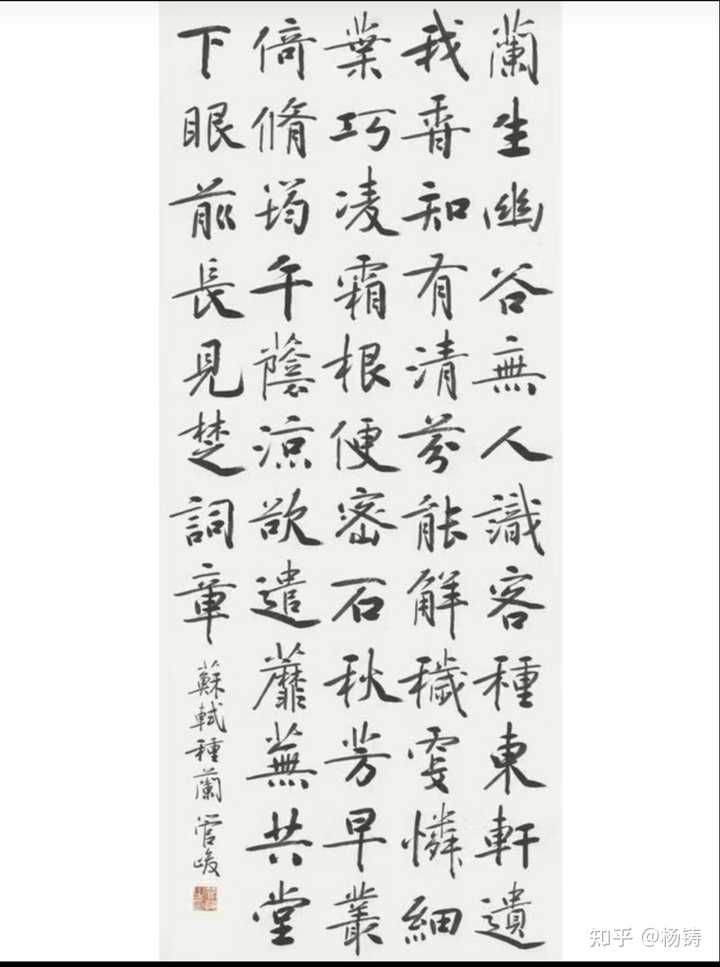 蘭生幽谷無人識客種東軒遺
我香知有清芬能解穢更憐細
葉巧凌霜根便密石秋芳早叢
倚脩筠午蔭涼欲遣蘼蕪共堂
下眼前長見楚詞章
蘇軾種蘭 管峻
知乎 @杨铸